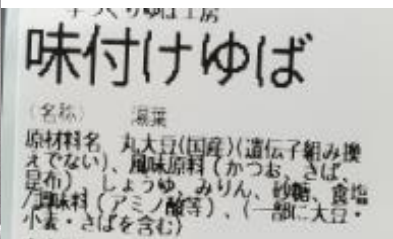 手づくりゆば工房
味付けゆば
(名称) 湯葉
原材料名 丸大豆(国産)(遺伝子組み換
えでない)、風味原料(かつお、さば、
昆布) しょうゆ、みりん、砂糖、食塩
/調味料(アミノ酸等)、(一部に大豆・
小麦・さばを含む)